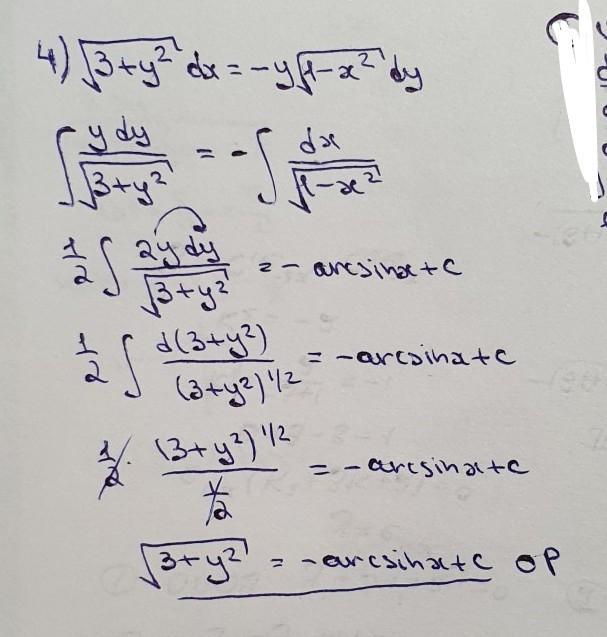 4) √(3+y²) dx = -y√(1-x²) dy
∫ y dy / √(3+y²) = - ∫ dx / √(1-x²)
1/2 ∫ 2y dy / √(3+y²) = - arcsinx + c
1/2 ∫ d(3+y²) / (3+y²)^1/2 = -arcsinx + c
1/2 · (3+y²)^1/2 / 1/2 = -arcsinx + c
√(3+y²) = -arcsinx + c ОР